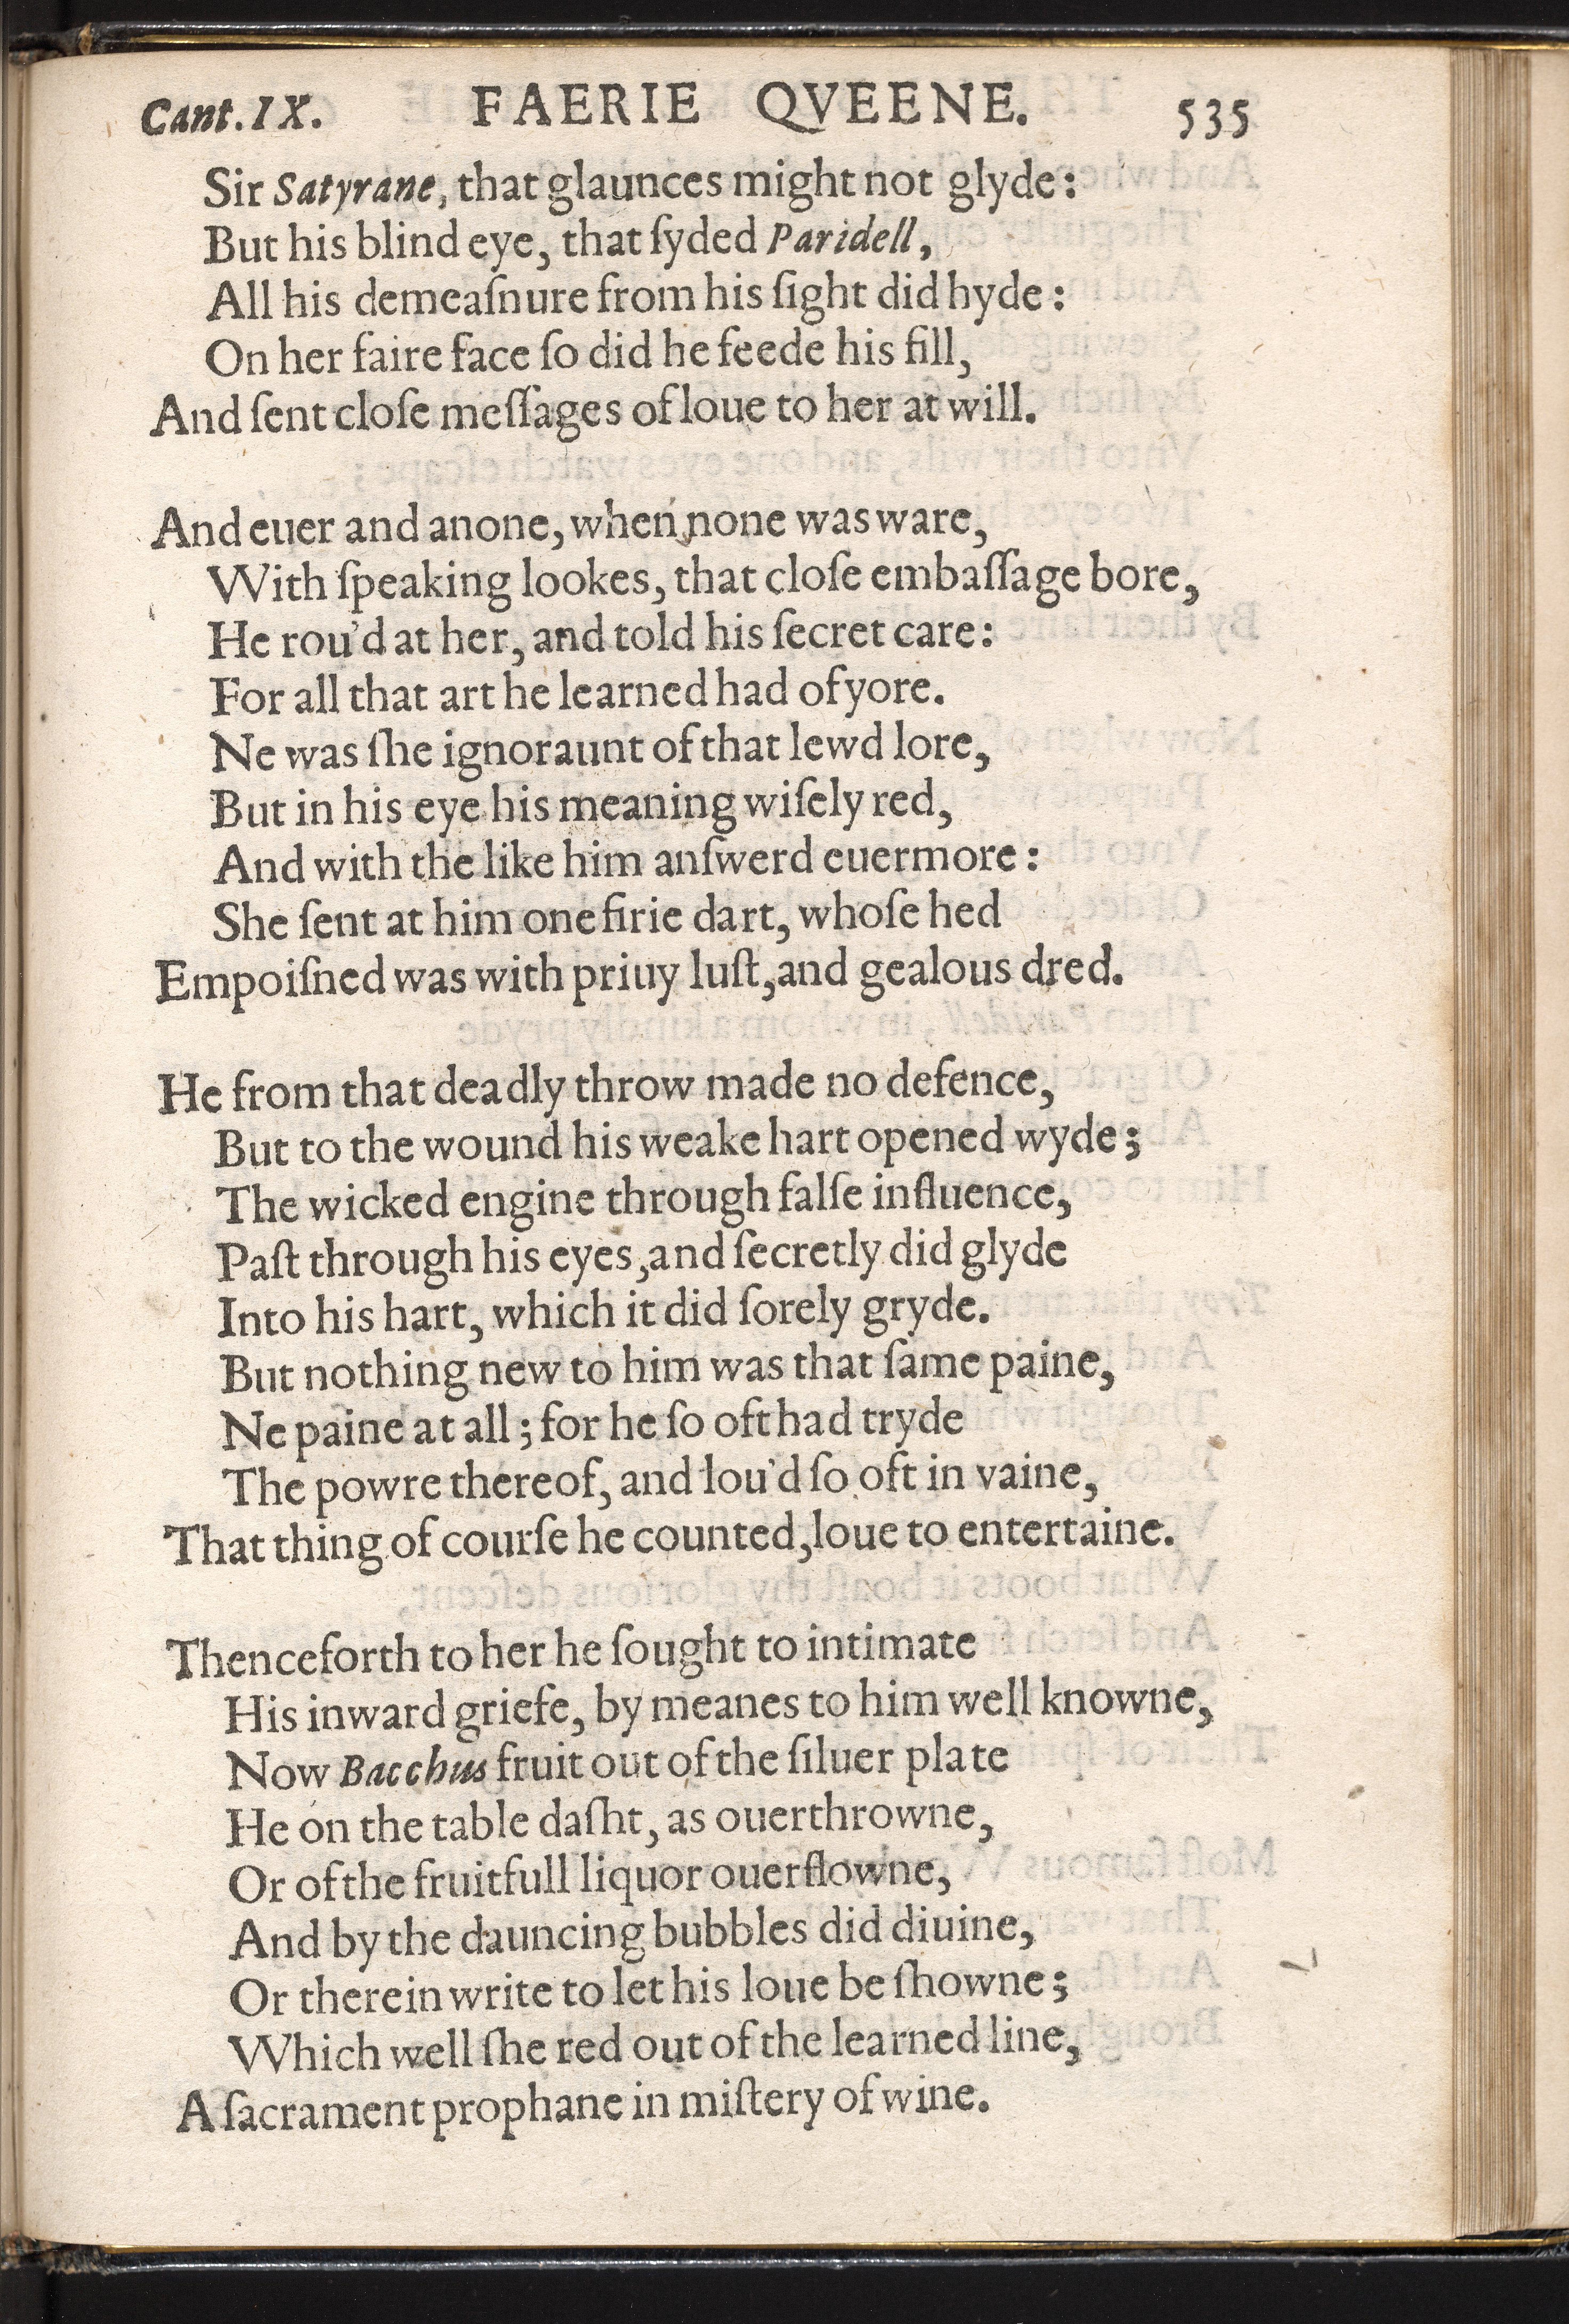 Cant. IX. FAERIE QVEENE. 535
Sir Satyrane, that glaunces might not glyde:
But his blind eye, that ſyded Paridell,
All his demeaſnure from his ſight did hyde:
On her faire face ſo did he feede his fill,
And ſent cloſe meſſages of loue to her at will.

And euer and anone, when none was ware,
With ſpeaking lookes, that cloſe embaſſage bore,
He rou'd at her, and told his ſecret care:
For all that art he learned had of yore.
Ne was ſhe ignoraunt of that lewd lore,
But in his eye his meaning wiſely red,
And with the like him anſwerd euermore:
She ſent at him one firie dart, whoſe hed
Empoiſned was with priuy luſt, and gealous dred.

He from that deadly throw made no defence,
But to the wound his weake hart opened wyde;
The wicked engine through falſe influence,
Paſt through his eyes, and ſecretly did glyde
Into his hart, which it did ſorely gryde.
But nothing new to him was that ſame paine,
Ne paine at all; for he ſo oft had tryde
The powre thereof, and lou'd ſo oft in vaine,
That thing of courſe he counted, loue to entertaine.

Thenceforth to her he ſought to intimate
His inward griefe, by meanes to him well knowne,
Now Bacchus fruit out of the ſiluer plate
He on the table daſht, as ouerthrowne,
Or of the fruitfull liquor ouerflowne,
And by the dauncing bubbles did diuine,
Or therein write to let his loue be ſhowne;
Which well ſhe red out of the learned line,
A ſacrament prophane in miſtery of wine.